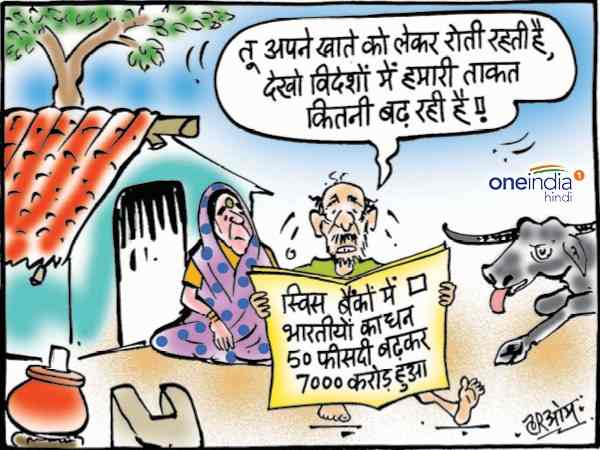 तू अपने खाते को लेकर रोती रहती है,
देखो विदेशों में हमारी ताकत
कितनी बढ़ रही है!
oneindia
hindi
स्विस बैंकों में
भारतीयों का धन
50 फीसदी बढ़कर
7000 करोड़ हुआ
हरिओम